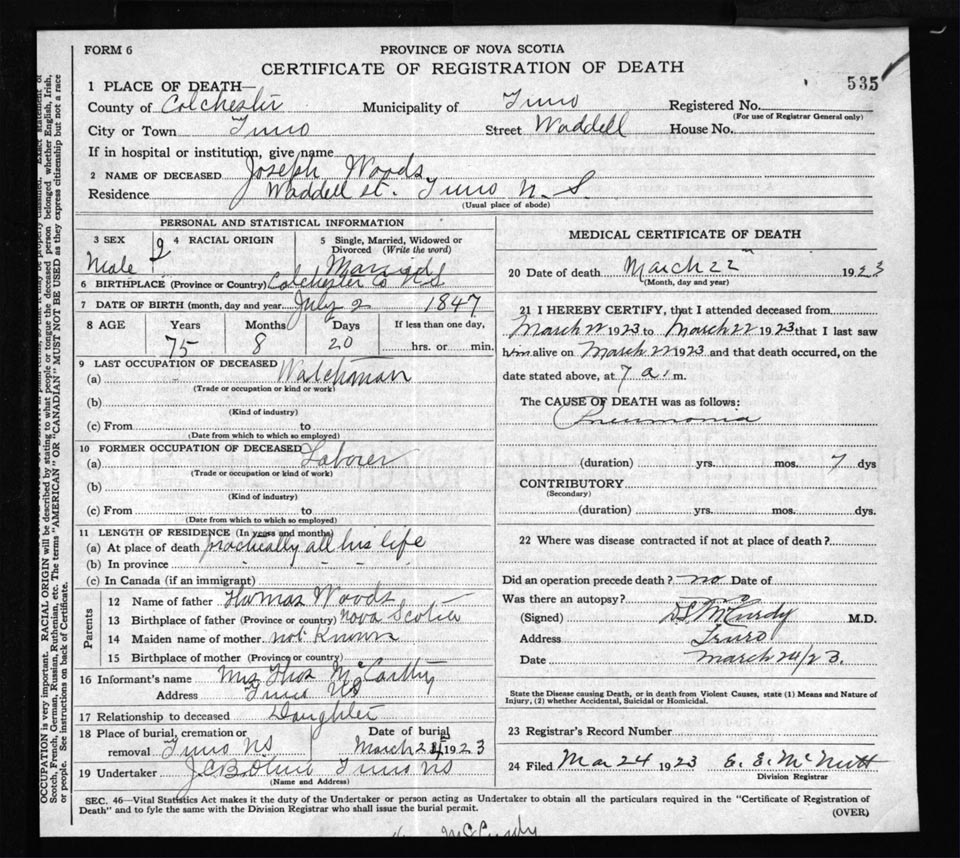 FORM 6
PROVINCE OF NOVA SCOTIA
CERTIFICATE OF REGISTRATION OF DEATH
535
1 PLACE OF DEATH—
County of Colchester Municipality of Truro Registered No.
(For use of Registrar General only)
City or Town Truro Street Waddell House No.
If in hospital or institution, give name
2 NAME OF DECEASED Joseph Woods
Residence Waddell St. Truro N. S.
(Usual place of abode)
PERSONAL AND STATISTICAL INFORMATION
3 SEX Male
4 RACIAL ORIGIN
5 Single, Married, Widowed or Divorced (Write the word)
Married
6 BIRTHPLACE (Province or Country) Colchester Co NS
7 DATE OF BIRTH (month, day and year) July 2 1847
8 AGE Years Months Days If less than one day,
75 8 20 hrs. or min.
9 LAST OCCUPATION OF DECEASED
(a) Watchman
(Trade or occupation or kind or work)
(b)
(Kind of industry)
(c) From to
(Date from which to which so employed)
10 FORMER OCCUPATION OF DECEASED
(a) Laborer
(Trade or occupation or kind of work)
(b)
(Kind of industry)
(c) From to
(Date from which to which so employed)
11 LENGTH OF RESIDENCE (In years and months)
(a) At place of death practically all his life
(b) In province " " " "
(c) In Canada (if an immigrant)
Parents
12 Name of father Thomas Woods
13 Birthplace of father (Province or country) Nova Scotia
14 Maiden name of mother not Known
15 Birthplace of mother (Province or country)
16 Informant's name Mrs Thos McCarthy
Address Truro NS
17 Relationship to deceased Daughter
18 Place of burial, cremation or removal Truro NS
Date of burial March 1923
19 Undertaker Truro NS
(Name and Address)
MEDICAL CERTIFICATE OF DEATH
20 Date of death March 22 1923
(Month, day and year)
21 I HEREBY CERTIFY, that I attended deceased from
March 22 1923 to March 22 1923 that I last saw
him alive on March 22 1923 and that death occurred, on the
date stated above, at 7 a. m.
The CAUSE OF DEATH was as follows:
Pneumonia
(duration) yrs. mos. 7 dys
CONTRIBUTORY
(Secondary)
(duration) yrs. mos. dys.
22 Where was disease contracted if not at place of death?
Did an operation precede death? no Date of
Was there an autopsy? no
(Signed) McCurdy M.D.
Address Truro
Date March 24/23.
State the Disease causing Death, or in death from Violent Causes, state (1) Means and Nature of
Injury, (2) whether Accidental, Suicidal or Homicidal.
23 Registrar's Record Number
24 Filed Mar 24 1923 E. E. McNutt
Division Registrar
SEC. 46—Vital Statistics Act makes it the duty of the Undertaker or person acting as Undertaker to obtain all the particulars required in the "Certificate of Registration of
Death" and to fyle the same with the Division Registrar who shall issue the burial permit.
(OVER)
McCurdy
OCCUPATION is very important. RACIAL ORIGIN will be described by stating to what people or tongue the deceased person belonged whether English, Irish,
Scotch, French, German, Russian, Ruthenian, etc. The terms "AMERICAN" OR "CANADIAN" MUST NOT BE USED as they express citizenship but not a race
or people. See instructions on back of Certificate.